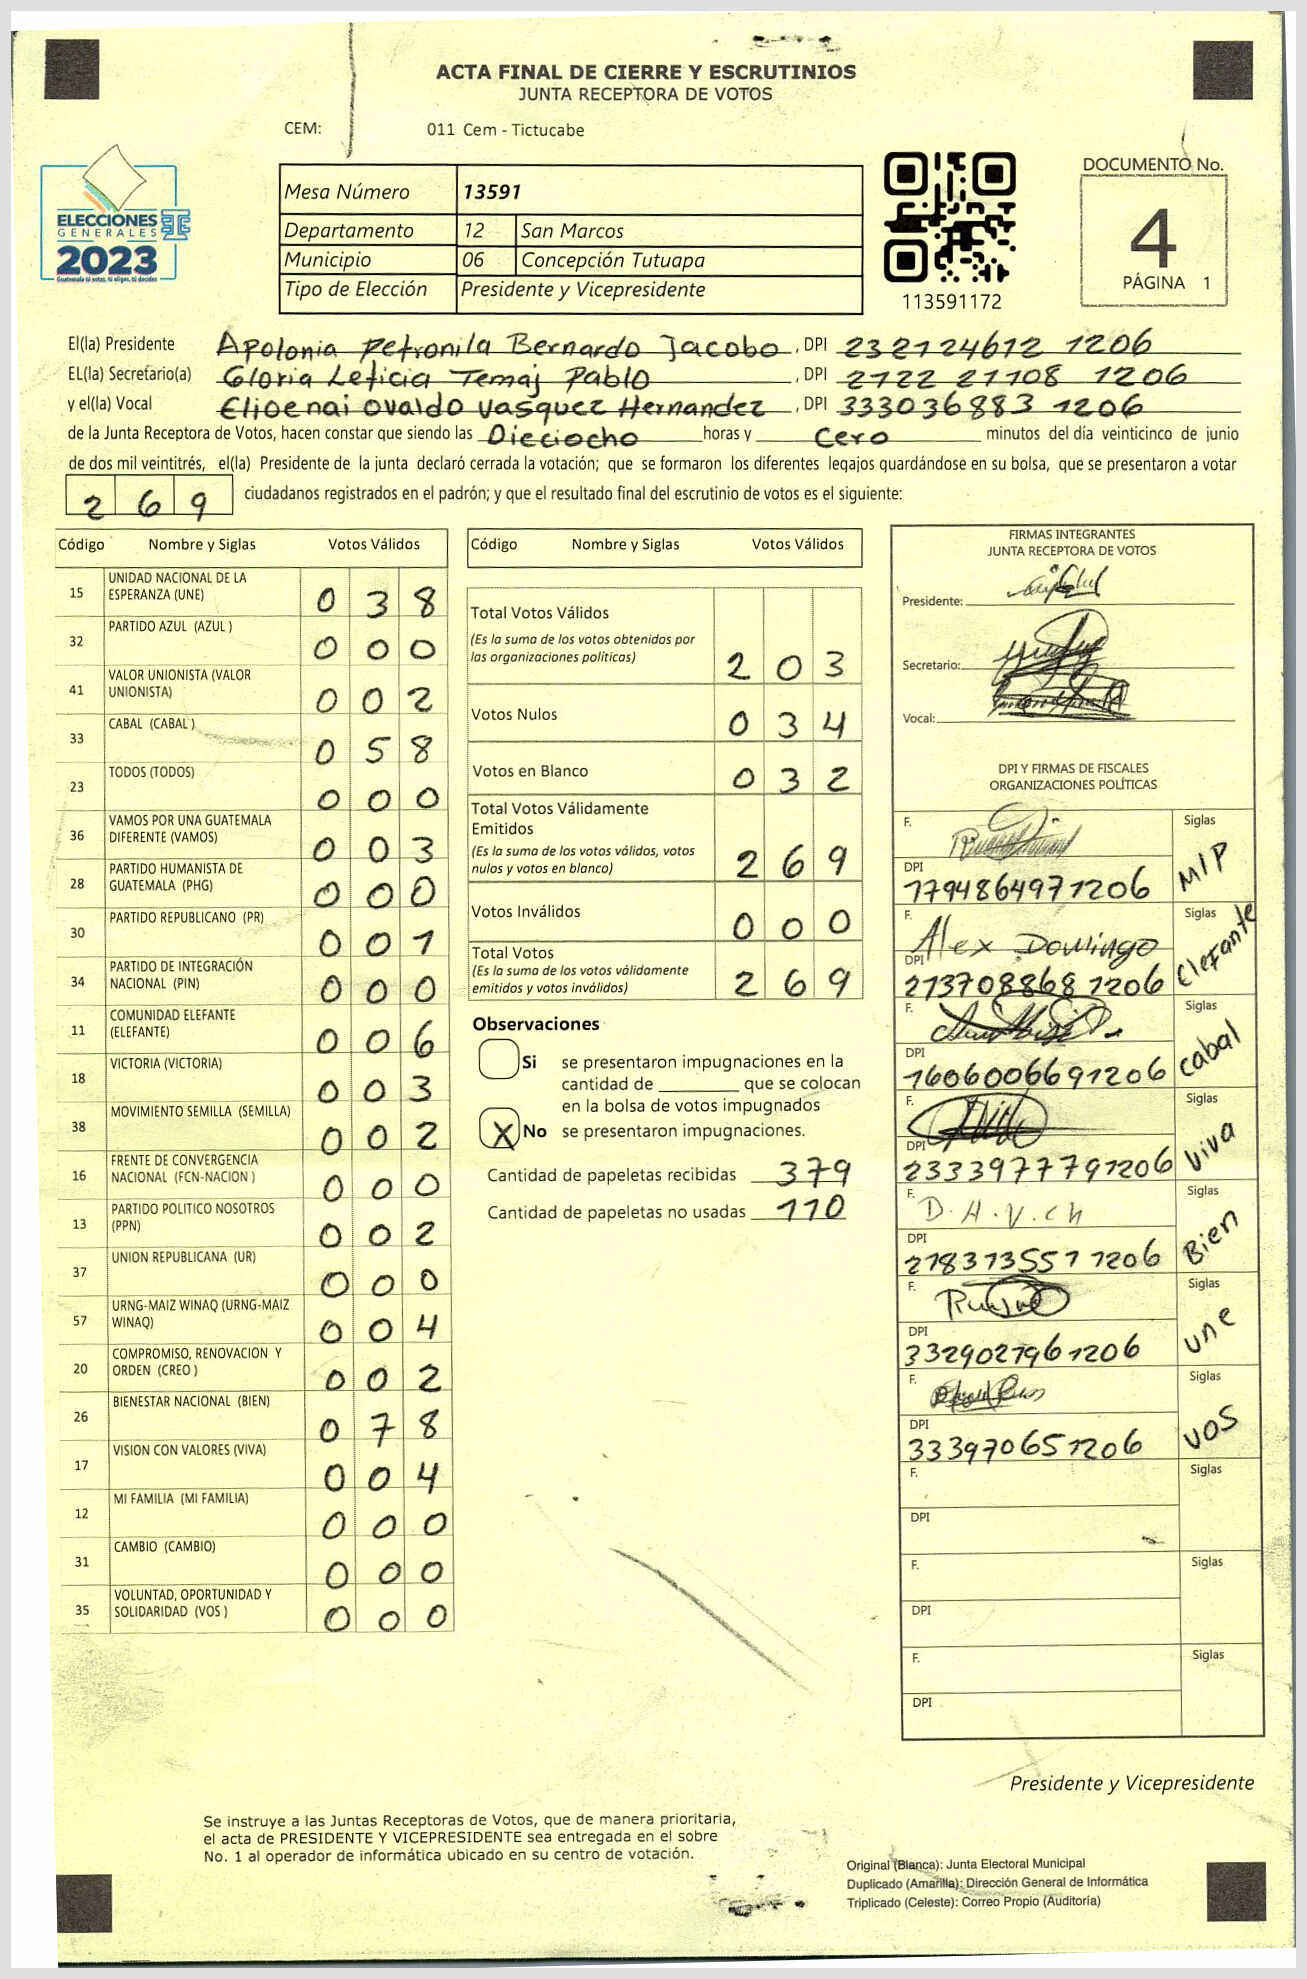 ACTA FINAL DE CIERRE Y ESCRUTINIOS
JUNTA RECEPTORA DE VOTOS
CEM: 011 Cem - Tictucabe
ELECCIONES
GENERALES
2023
Guatemala tú votas, tú eliges, tú decides
Mesa Número 13591
Departamento 12 San Marcos
Municipio 06 Concepción Tutuapa
Tipo de Elección Presidente y Vicepresidente
113591172
DOCUMENTO No.
4
PÁGINA 1
El(la) Presidente Apolonia Petronila Bernardo Jacobo, DPI 232124612 1206
EL(la) Secretario(a) Gloria Leticia Temaj Pablo, DPI 2122 21108 1206
y el(la) Vocal Elioenai Ovaldo Vasquez Hernandez, DPI 333036883 1206
de la Junta Receptora de Votos, hacen constar que siendo las Dieciocho horas y Cero minutos del día veinticinco de junio
de dos mil veintitrés, el(la) Presidente de la junta declaró cerrada la votación; que se formaron los diferentes legajos guardándose en su bolsa, que se presentaron a votar
269 ciudadanos registrados en el padrón; y que el resultado final del escrutinio de votos es el siguiente:
Código Nombre y Siglas Votos Válidos
15 UNIDAD NACIONAL DE LA ESPERANZA (UNE) 038
32 PARTIDO AZUL (AZUL ) 000
41 VALOR UNIONISTA (VALOR UNIONISTA) 002
33 CABAL (CABAL ) 058
23 TODOS (TODOS) 000
36 VAMOS POR UNA GUATEMALA DIFERENTE (VAMOS) 003
28 PARTIDO HUMANISTA DE GUATEMALA (PHG) 000
30 PARTIDO REPUBLICANO (PR) 001
34 PARTIDO DE INTEGRACIÓN NACIONAL (PIN) 000
11 COMUNIDAD ELEFANTE (ELEFANTE) 006
18 VICTORIA (VICTORIA) 003
38 MOVIMIENTO SEMILLA (SEMILLA) 002
16 FRENTE DE CONVERGENCIA NACIONAL (FCN-NACION ) 000
13 PARTIDO POLITICO NOSOTROS (PPN) 002
37 UNION REPUBLICANA (UR) 000
57 URNG-MAIZ WINAQ (URNG-MAIZ WINAQ) 004
20 COMPROMISO, RENOVACION Y ORDEN (CREO ) 002
26 BIENESTAR NACIONAL (BIEN) 078
17 VISION CON VALORES (VIVA) 004
12 MI FAMILIA (MI FAMILIA) 000
31 CAMBIO (CAMBIO) 000
35 VOLUNTAD, OPORTUNIDAD Y SOLIDARIDAD (VOS ) 000
Código Nombre y Siglas Votos Válidos
Total Votos Válidos
(Es la suma de los votos obtenidos por
las organizaciones políticas) 203
Votos Nulos 034
Votos en Blanco 032
Total Votos Válidamente
Emitidos
(Es la suma de los votos válidos, votos
nulos y votos en blanco) 269
Votos Inválidos 000
Total Votos
(Es la suma de los votos válidamente
emitidos y votos inválidos) 269
Observaciones
Si se presentaron impugnaciones en la
cantidad de ________ que se colocan
en la bolsa de votos impugnados
X No se presentaron impugnaciones.
Cantidad de papeletas recibidas 379
Cantidad de papeletas no usadas 110
FIRMAS INTEGRANTES
JUNTA RECEPTORA DE VOTOS
Presidente:
Secretario:
Vocal:
DPI Y FIRMAS DE FISCALES
ORGANIZACIONES POLÍTICAS
F. Siglas MLP
DPI 1794864971206
F. Alex Domingo Siglas Elefante
DPI 213708868 1206
F. Siglas cabal
DPI 1606006691206
F. Siglas viva
DPI 2333977791206
F. D.A.V.ch Siglas Bien
DPI 218373557 1206
F. Siglas une
DPI 3329027961206
F. Siglas VOS
DPI 333970651206
F. Siglas
DPI
F. Siglas
DPI
F. Siglas
DPI
Presidente y Vicepresidente
Se instruye a las Juntas Receptoras de Votos, que de manera prioritaria,
el acta de PRESIDENTE Y VICEPRESIDENTE sea entregada en el sobre
No. 1 al operador de informática ubicado en su centro de votación.
Original (Blanca): Junta Electoral Municipal
Duplicado (Amarilla): Dirección General de Informática
Triplicado (Celeste): Correo Propio (Auditoría)